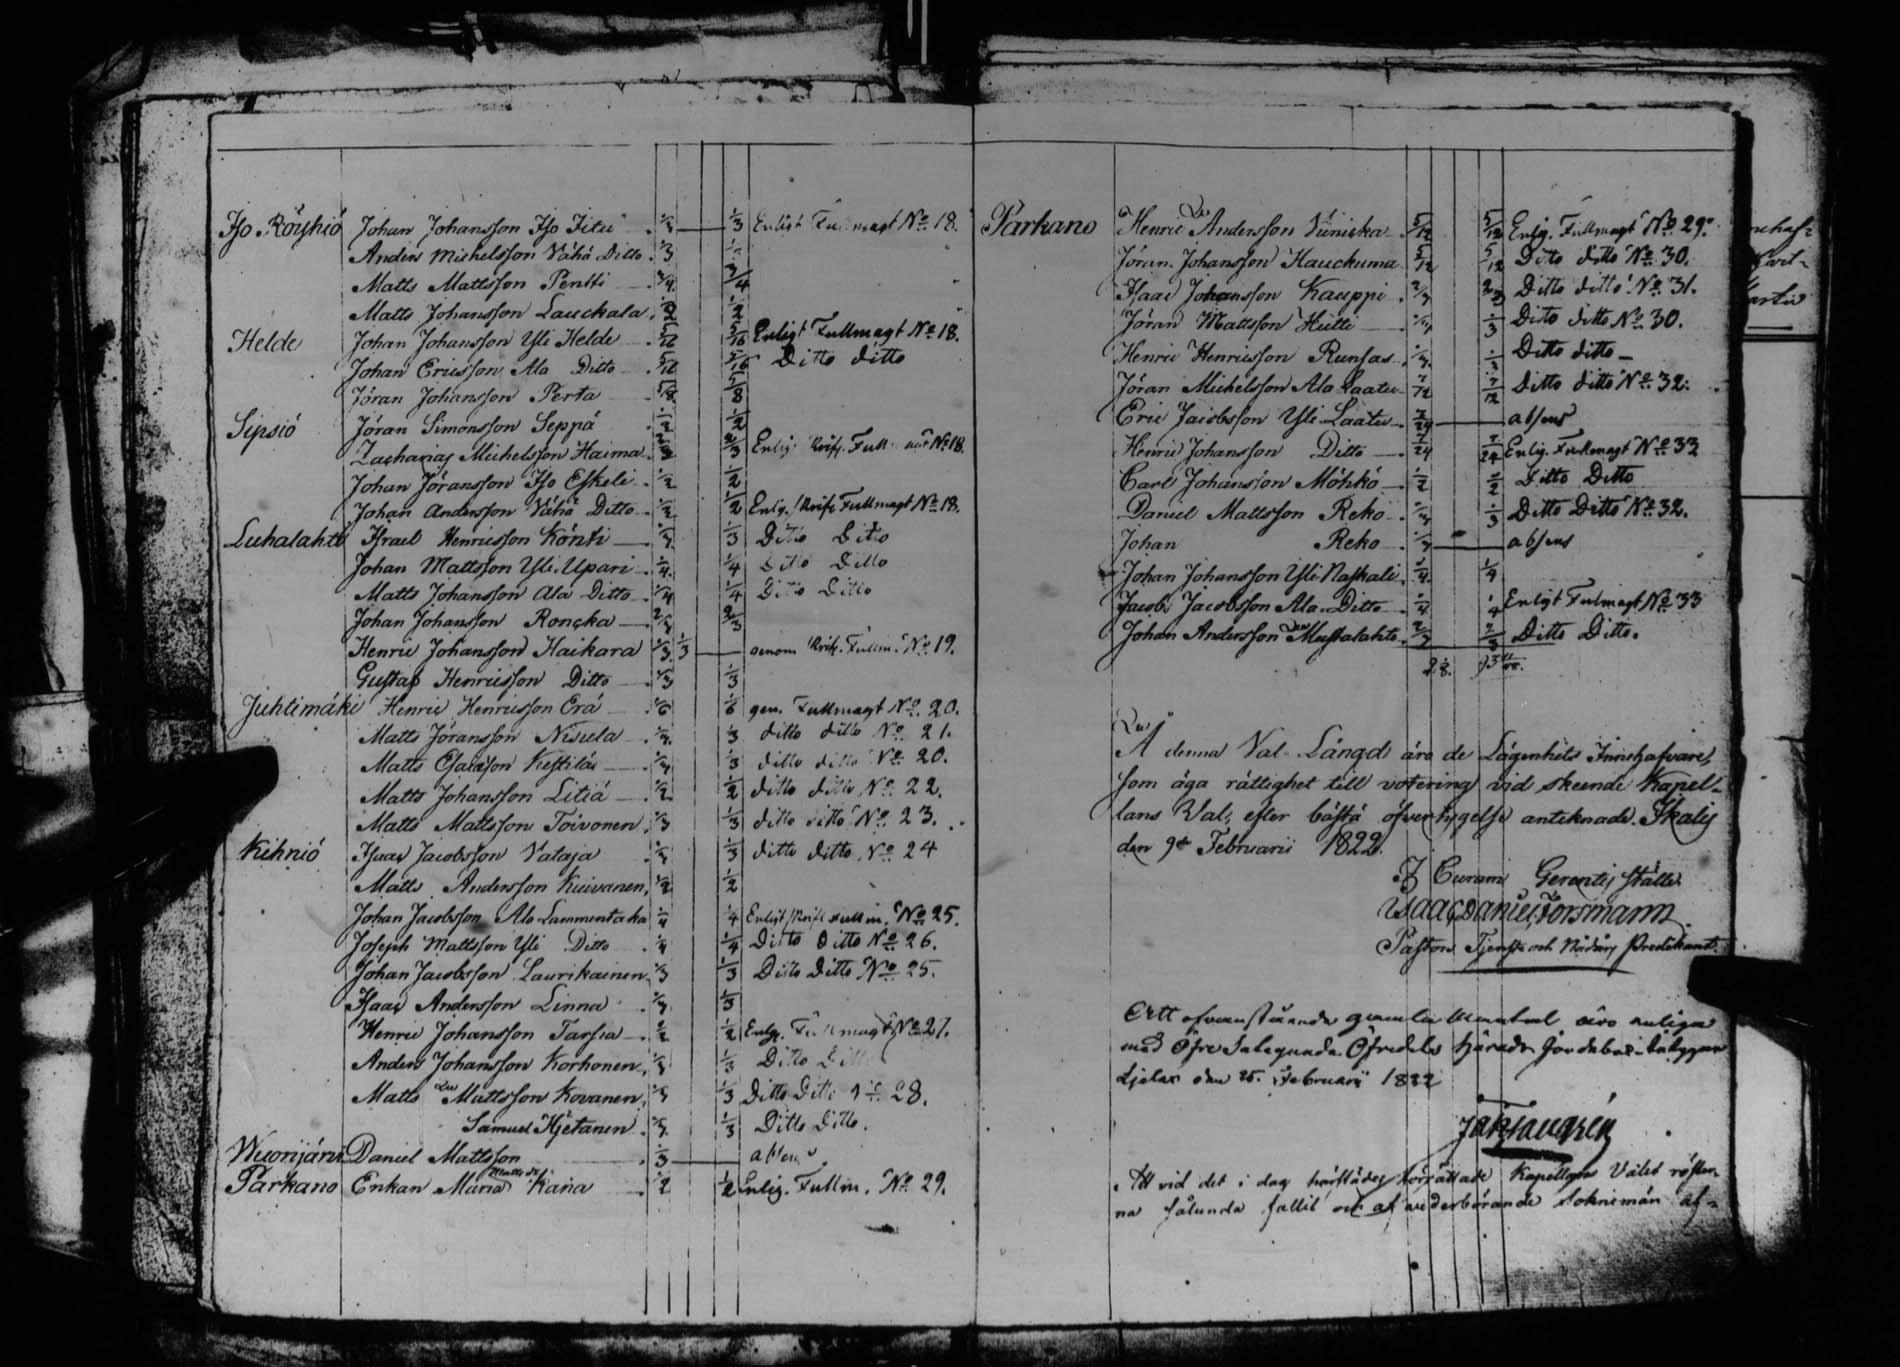 Iso Röyhiö Johan Johansson Iso Iitu 1/3 — 1/3 Enligt Fullmagt No 18.
Anders Michelsson Vähä Ditto 1/3 1/3
Matts Mattsson Pentti 3/4 3/4
Matts Johansson Lauckala 1/2 1/2
Helde Johan Johansson Yli Helde 5/16 5/16 Enligt Fullmagt No 18.
Johan Ericsson Ala Ditto 5/16 5/16 Ditto ditto
Jöran Johansson Perta 5/8 5/8
Sipsiö Jöran Simonsson Seppä 1/2 1/2
Zacharias Michelsson Haima 2/3 2/3 Enligt Skrift. Fullm. No 18.
Johan Jöransson Iso Eskeli 1/2 1/2
Johan Andersson Vähä Ditto 1/2 1/2 Enlig. Skrift Fullmagt No 18.
Luhalahti Israel Henricsson Könti 1/3 1/3 Ditto Ditto
Johan Mattsson Yli Upari 1/4 1/4 Ditto Ditto
Matts Johansson Ala Ditto 1/4 1/4 Ditto Ditto
Johan Johansson Roncka 2/3 2/3
Henric Johansson Haikara 1/3 1/3 — genom Skrif. Fullm. No 19.
Gustaf Henricsson Ditto 1/3 1/3
Juhtimäki Henric Henricsson Erä 1/6 1/6 gen. Fullmagt No 20.
Matts Jöransson Nisula 1/3 1/3 ditto ditto No 21.
Matts Esaiæson Kestilä 1/3 1/3 ditto ditto No 20.
Matts Johansson Litiä 1/2 1/2 ditto ditto No 22.
Matts Mattsson Toivonen 1/3 1/3 ditto ditto No 23.
Kihniö Isaac Jacobsson Vataja 1/3 1/3 ditto ditto No 24
Matts Andersson Kuivanen 1/2 1/2
Johan Jacobsson Ala Lammentaka 1/4 1/4 Enligt Skrift Fullm. No 25.
Joseph Mattsson Yli Ditto 1/4 1/4 Ditto Ditto No 26.
Johan Jacobsson Laurikainen 1/3 1/3 Ditto Ditto No 25.
Isaac Andersson Linna 1/3 1/3
Henric Johansson Tarsia 1/2 1/2 Enlig. Fullmagt No 27.
Anders Johansson Korhonen 1/3 1/3 Ditto Ditto
Matts Mattsson Kovanen 1/3 1/3 Ditto Ditto No 28.
Samuel Hjetanen 1/3 1/3 Ditto Ditto.
Wuorijärvi Daniel Mattsson 1/3 — absens
Parkano Enkan Maria Matts dr Kaña 1/2 1/2 Enlig. Fullm. No 29.
Parkano Henric Andersson Viiniska 5/12 5/12 Enlig. Fullmagt No 29.
Jöran Johansson Hauckuma 5/12 5/12 Ditto ditto No 30.
Isaac Johansson Kauppi 2/3 2/3 Ditto ditto No 31.
Jöran Mattsson Hutti 1/3 1/3 Ditto ditto No 30.
Henric Henricsson Runsas 1/3 1/3 Ditto ditto
Jöran Michelsson Ala Laatu 7/12 7/12 Ditto ditto No 32.
Eric Jacobsson Yli Laatu 7/24 — absens
Henric Johansson Ditto 7/24 7/24 Enlig. Fullmagt No 33
Carl Johansson Möhkö 1/2 1/2 Ditto Ditto
Daniel Mattsson Reko 1/3 1/3 Ditto Ditto No 32.
Johan Reko 1/3 — absens
Johan Johansson Yli Naskali 1/4 1/4
Jacob Jacobsson Ala Ditto 1/4 1/4 Enligt Fullmagt No 33
Johan Andersson Mustalahti 2/3 2/3 Ditto Ditto.
Å denna Val-Längd äro de Lägenhets Innehafvare,
som äga rättighet till votering vid skeende Kapel-
lans Val, efter bästa öfvertygelse anteknade. Ikalis
den 9de Februarii 1822.
I Curam Gerentis ställe
Isaac Daniel Forsmann
Pastors Tjenste och Nådårs Predikant.
Att ofvanstående gamla Mantal äro enliga
med Öfre Satagunda Öfredels Härads Jordebok
den 25. Februarii 1822
Att vid det i dag härstädes förrättade Kapellans Valet röster-
na sålunda fallit och af vederbörande Sokneman af-